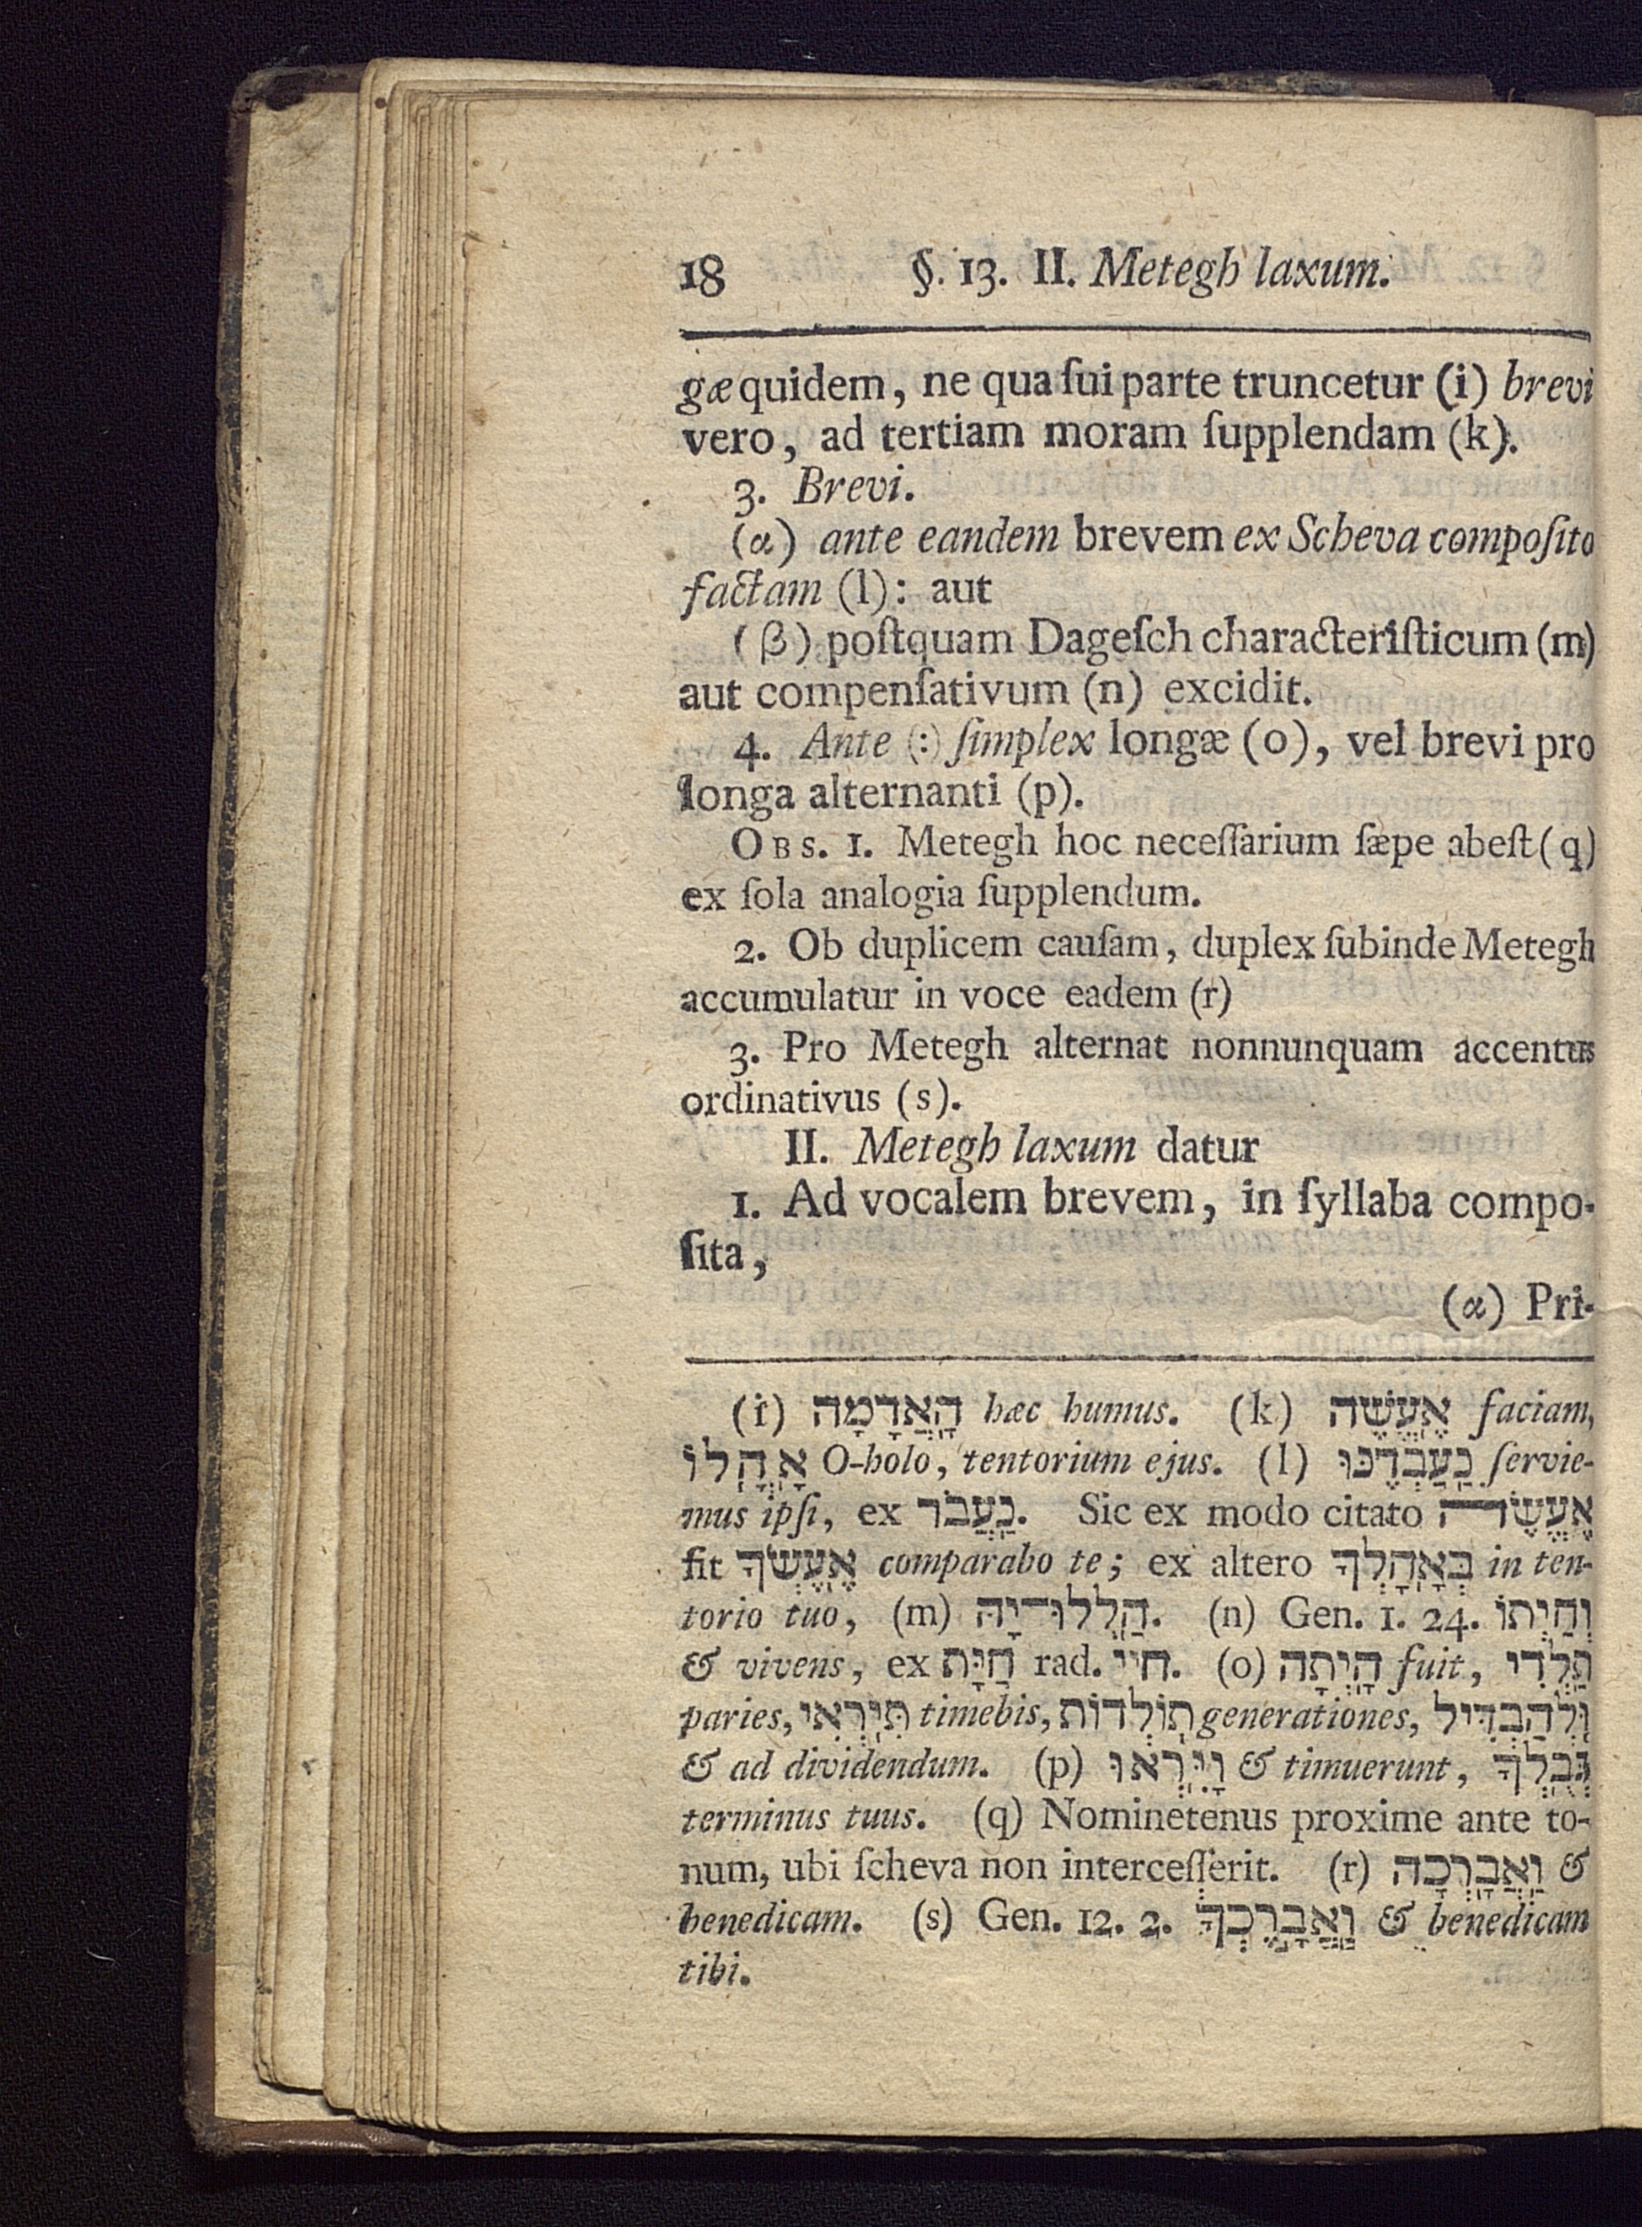 18 §. 13. II. Metegh laxum.
gæ quidem, ne qua ſui parte truncetur (i) brevi
vero, ad tertiam moram ſupplendam (k).
3. Brevi.
(α) ante eandem brevem ex Scheva compoſito
factam (l): aut
(β) poſtquam Dageſch characteriſticum (m)
aut compenſativum (n) excidit.
4. Ante (:) ſimplex longæ (o), vel brevi pro
longa alternanti (p).
OBS. 1. Metegh hoc neceſſarium ſæpe abeſt (q)
ex ſola analogia ſupplendum.
2. Ob duplicem cauſam, duplex ſubinde Metegh
accumulatur in voce eadem (r)
3. Pro Metegh alternat nonnunquam accentus
ordinativus (s).
II. Metegh laxum datur
1. Ad vocalem brevem, in ſyllaba compo-
ſita,
(α) Pri-
(i) הָֽאֲדָמָה hæc humus. (k) אֶֽעֱשֶׂה faciam,
אָֽהֳלוֹ O-holo, tentorium ejus. (l) נַֽעַבְדֶנּוּ ſervie-
mus ipſi, ex נַֽעֲבֹד. Sic ex modo citato אֶֽעֱשֶׂה
fit אֶֽעֶשְׂךָ comparabo te; ex altero בְּאָֽהָלְךָ in ten-
torio tuo, (m) הַֽלְלוּ־יָהּ. (n) Gen. 1. 24. וְחַֽיְתוֹ
& vivens, ex חַיַּת rad. חיי. (o) הָֽיְתָה fuit, תֵּֽלְדִי
paries, תִּֽירְאִי timebis, תּֽוֹלְדוֹת generationes, וּֽלְהַבְדִּיל
& ad dividendum. (p) וַיִּֽרְאוּ & timuerunt, גְּבֻֽלְךָ
terminus tuus. (q) Nominetenus proxime ante to-
num, ubi ſcheva non interceſſerit. (r) וַֽאֲבָֽרְכָה &
benedicam. (s) Gen. 12. 2. וַֽאֲבָרֶכְךָ & benedicam
tibi.